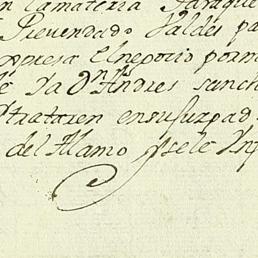 la materia Para que
Prevendado Valdes pa
expresa El negocio por m
Ya Dn Andres sanch
tratasen en su Juzpad
del Alamo y se le Inf